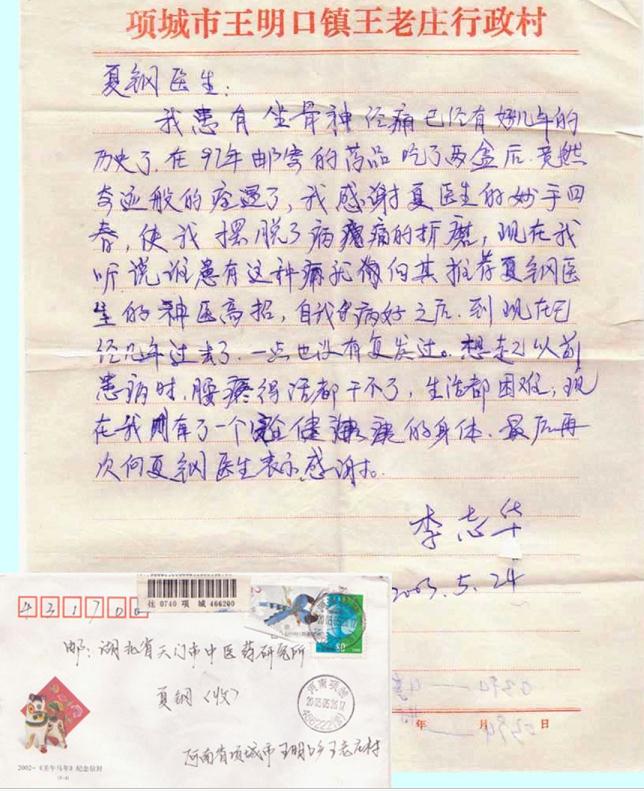 项城市王明口镇王老庄行政村
夏钢医生:
我患有坐骨神经痛已经有好几年的
历史了.在97年邮寄的药品吃了两盒后.竟然
奇迹般的痊遇了,我感谢夏医生的妙手回
春,使我摆脱了病痛的折磨,现在我
听说谁患有这种病我向其推荐夏钢医
生的神医高招,自我的病好之后.到现在已
经几年过去了.一点也没有复发过。想起以前
患病时,腰疼得活都干不了,生活都困难,现
在我有了一个健康的身体.最后再
次向夏钢医生表示感谢。
李志华
2003.5.24
年 月 日
431700
挂 0740 项 城 466200
邮:湖北省天门市中医药研究所
夏钢(收)
河南省项城市王明口乡王老庄村
河南项城
2003.05.26.17
80
2002-《壬午马年》纪念信封